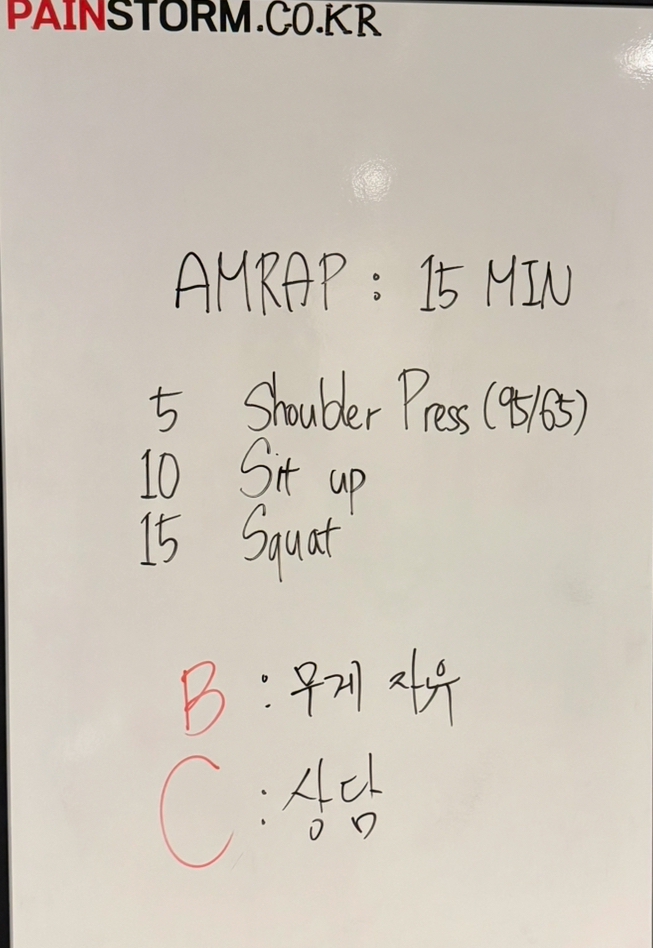 PAINSTORM.CO.KR
AMRAP : 15 MIN
5 Shoulder Press (95/65)
10 Sit up
15 Squat
B : 무게 자유
C : 상담